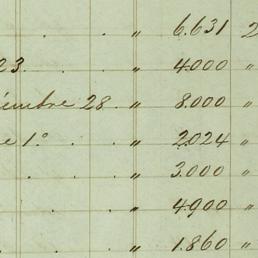 . " 6.631 2
23. . . " 4.000 "
émbre 28. " 8.000 "
e 1º . " 2.024 "
. . " 3.000 "
. . . " 4.900 "
. . . " 1.860 "